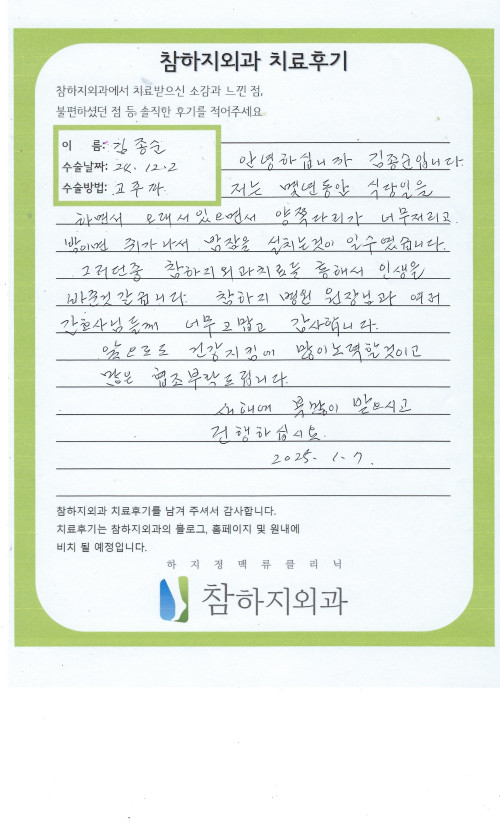 참하지외과 치료후기
참하지외과에서 치료받으신 소감과 느낀 점,
불편하셨던 점 등 솔직한 후기를 적어주세요.
이 름: 김종순
수술날짜: 24. 12. 2
수술방법: 고주파
안녕하십니까 김종순입니다.
저는 몇년동안 식당일을
하면서 오래 서있으면서 양쪽다리가 너무저리고
밤이면 쥐가나서 밤잠을 설치는것이 일수였습니다.
그러던중 참하지외과치료를 통해서 인생을
바꾼것 같습니다. 참하지 병원 원장님과 여러
간호사님들께 너무 고맙고 감사합니다.
앞으로도 건강지킴에 많이노력할것이고
많은 협조부탁드립니다.
새해에 복많이 받으시고
건행하십시요.
2025. 1. 7.
참하지외과 치료후기를 남겨 주셔서 감사합니다.
치료후기는 참하지외과의 블로그, 홈페이지 및 원내에
비치 될 예정입니다.
하지정맥류클리닉
참하지외과